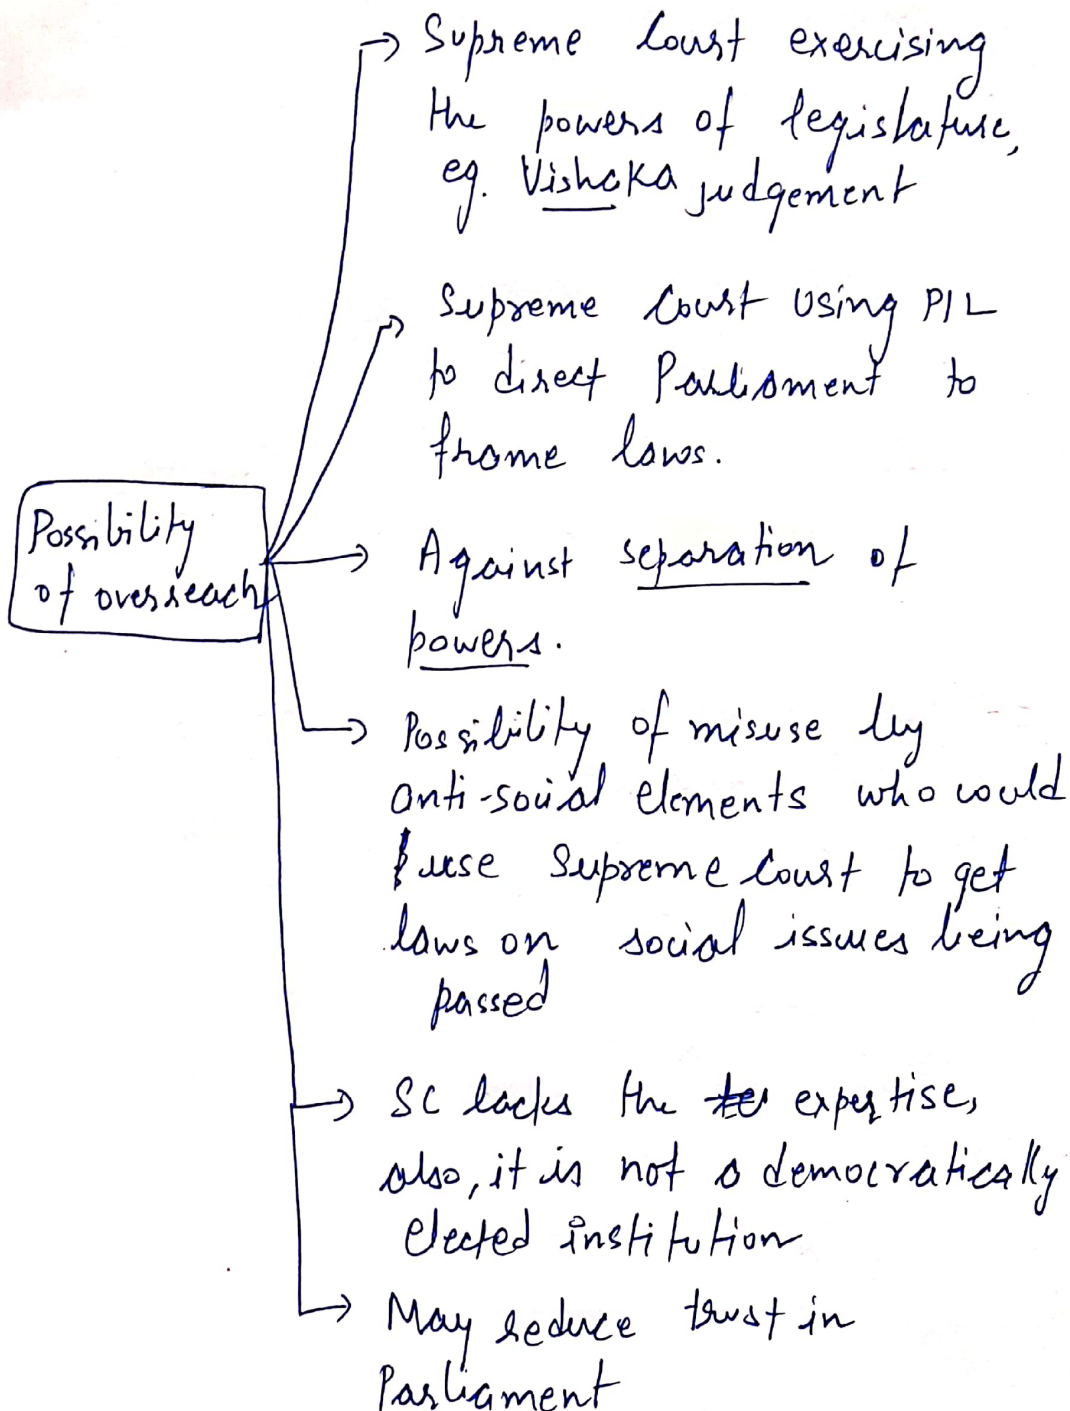 Supreme Court exercising
the powers of legislature,
eg. Vishaka judgement
Supreme Court using PIL
to direct Parliament to
frame laws.
Possibility
of overreach
Against separation of
powers.
Possibility of misuse by
anti-social elements who could
use Supreme Court to get
laws on social issues being
passed
SC lacks the expertise,
also, it is not a democratically
elected institution
May reduce trust in
Parliament